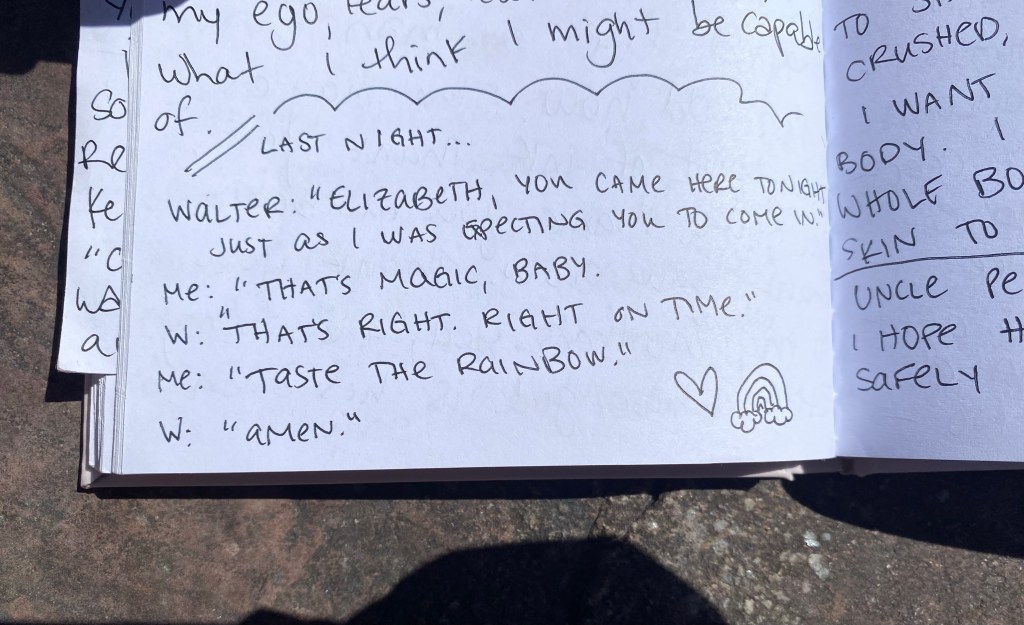 my ego,
what I think I might be capable
of.
LAST NIGHT...
WALTER: "ELIZABETH, YOU CAME HERE TONIGHT
JUST AS I WAS EXPECTING YOU TO COME IN."
Me: "THAT'S MAGIC, BABY.
W: "THAT'S RIGHT. RIGHT ON TIME."
Me: "TASTE THE RAINBOW."
W: "AMEN."
So
Re
Ke
"C
WA
a
TO
CRUSHED,
I WANT
BODY. I
WHOLE BO
SKIN TO
UNCLE Pe
I HOPE
SAFELY